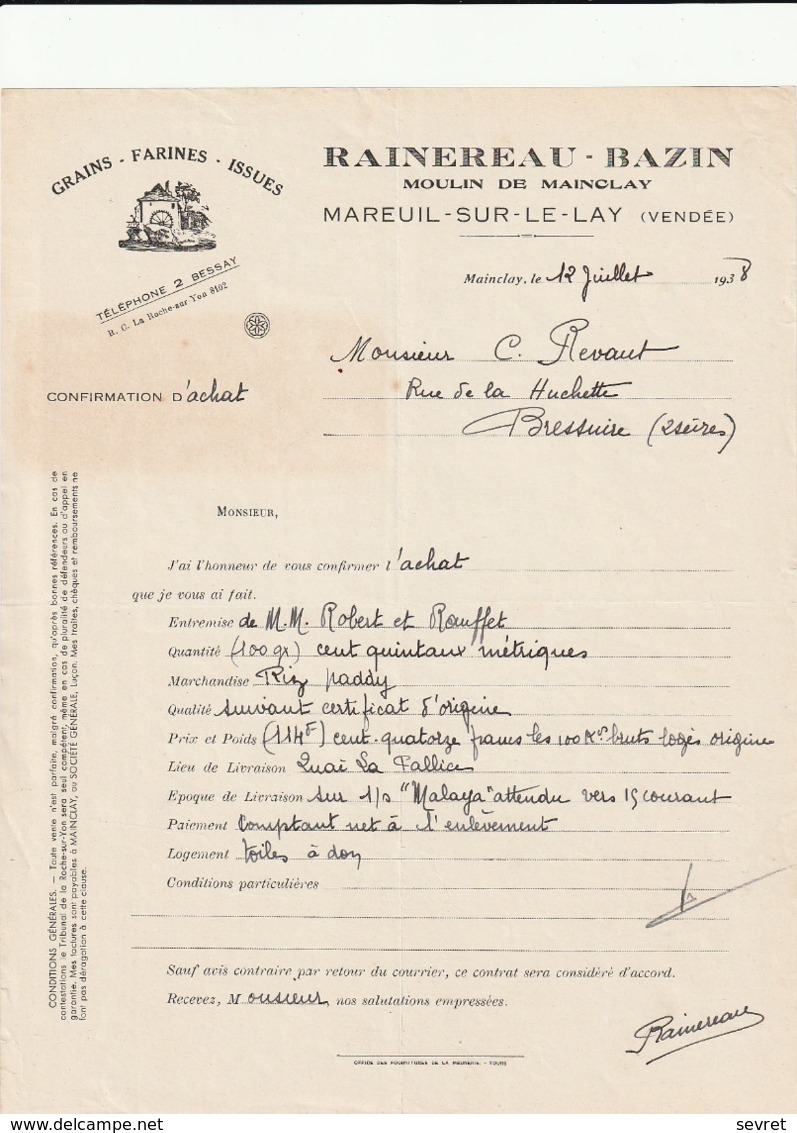 GRAINS - FARINES - ISSUES
TÉLÉPHONE 2 BESSAY
R. C. La Roche-sur-Yon 8102
RAINEREAU - BAZIN
MOULIN DE MAINCLAY
MAREUIL-SUR-LE-LAY (VENDÉE)
Mainclay, le 12 Juillet 1938
Monsieur C. Revaut
Rue de la Huchette
Bressuire (2 sèvres)
CONFIRMATION D'achat
MONSIEUR,
J'ai l'honneur de vous confirmer l'achat
que je vous ai fait.
Entremise de M.M. Robert et Rouffet
Quantité (100 qx) cent quintaux métriques
Marchandise Riz paddy
Qualité suivant certificat d'origine
Prix et Poids (114F) cent-quatorze francs les 100 Kos bruts logés origine
Lieu de Livraison Quai La Pallice
Epoque de Livraison sur s/s "Malaya" attendu vers 15 courant
Paiement Comptant net à l'enlèvement
Logement toiles à don
Conditions particulières
Sauf avis contraire par retour du courrier, ce contrat sera considéré d'accord.
Recevez, Monsieur, nos salutations empressées.
Rainereau
CONDITIONS GÉNÉRALES. — Toute vente n'est parfaite, malgré confirmation, qu'après bonnes références. En cas de
contestations le Tribunal de la Roche-sur-Yon sera seul compétent, même en cas de pluralité de défendeurs ou d'appel en
garantie. Mes factures sont payables à MAINCLAY, ou SOCIÉTÉ GÉNÉRALE, Luçon. Mes traites, chèques et remboursements ne
font pas dérogation à cette clause.
OFFICE DES FOURNITURES DE LA MEUNERIE. - TOURS
delcampe.net
sevret